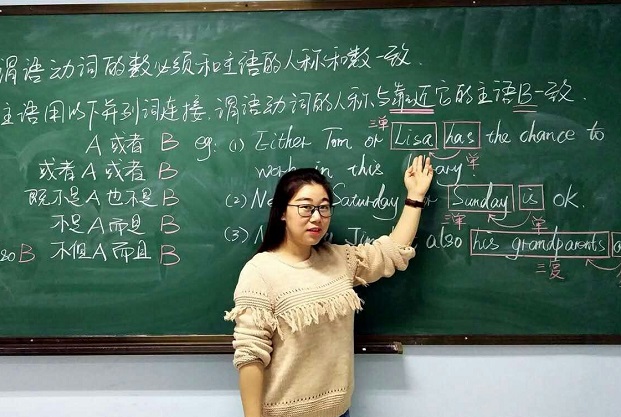 谓语动词的数必须和主语的人称和数一致.
主语用以下并列词连接,谓语动词的人称与靠近它的主语B一致.
A或者B eg: (1) Either Tom or Lisa has the chance to
三单 单
或者A或者B work in this
既不是A也不是B (2) Saturday Sunday is ok.
三单 单
不是A而是B (3) also his grandparents
so B 不但A而且B 三复